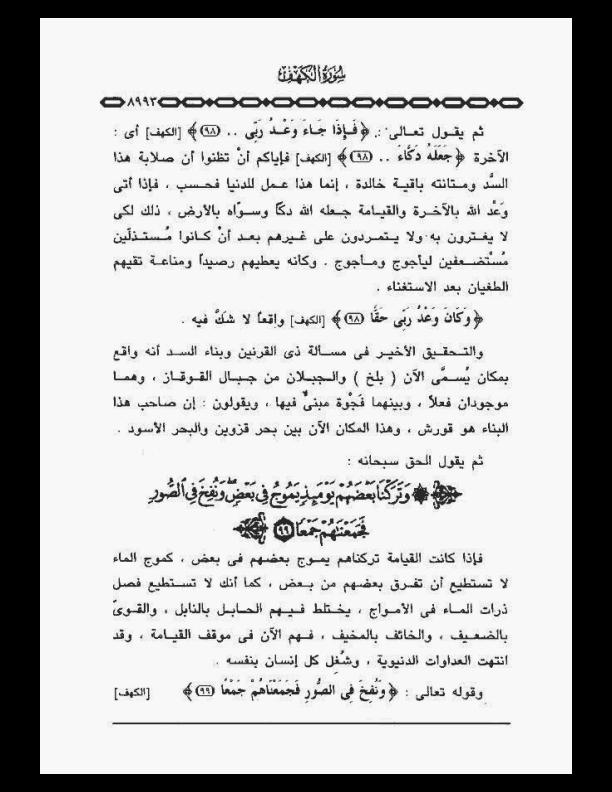 سُورَةُ الْكَهْفِ
٨٩٩٣
ثم يقول تعالى : ﴿ فَإِذَا جَاءَ وَعْدُ رَبِّى .. (٩٨) ﴾ [الكهف] أى :
الآخرة ﴿ جَعَلَهُ دَكَّاءَ .. (٩٨) ﴾ [الكهف] فإياكم أنْ تظنوا أن صلابة هذا
السدَّ ومتانته باقية خالدة ، إنما هذا عمل للدنيا فحسب ، فإذا أتى
وَعْد الله بالآخرة والقيامة جعله الله دكّاً وسوّاه بالأرض ، ذلك لكى
لا يغترون به ولا يتمردون على غيرهم بعد أنْ كانوا مُستذلّين
مُسْتضعفين ليأجوج ومأجوج . وكأنه يعطيهم رصيداً ومناعة تقيهم
الطغيان بعد الاستغناء .
﴿ وَكَانَ وَعْدُ رَبِّى حَقًّا (٩٨) ﴾ [الكهف] واقعاً لا شكَّ فيه .
والتحقيق الأخير فى مسألة ذى القرنين وبناء السد أنه واقع
بمكان يُسمَّى الآن ( بلخ ) والجبلان من جبال القوقاز ، وهما
موجودان فعلاً ، وبينهما فَجْوة مبنىٌّ فيها ، ويقولون : إن صاحب هذا
البناء هو قورش ، وهذا المكان الآن بين بحر قزوين والبحر الأسود .
ثم يقول الحق سبحانه :
وَتَرَكْنَا بَعْضَهُمْ يَوْمَئِذٍ يَمُوجُ فِى بَعْضٍ وَنُفِخَ فِى الصُّورِ
فَجَمَعْنَاهُمْ جَمْعًا (٩٩)
فإذا كانت القيامة تركناهم يموج بعضهم فى بعض ، كموج الماء
لا تستطيع أن تفرق بعضهم من بعض ، كما أنك لا تستطيع فصل
ذرات الماء فى الأمواج ، يختلط فيهم الحابل بالنابل ، والقوىّ
بالضعيف ، والخائف بالمخيف ، فهم الآن فى موقف القيامة ، وقد
انتهت العداوات الدنيوية ، وشُغِل كل إنسان بنفسه .
وقوله تعالى : ﴿ وَنُفِخَ فِى الصُّورِ فَجَمَعْنَاهُمْ جَمْعًا (٩٩) ﴾ [الكهف]